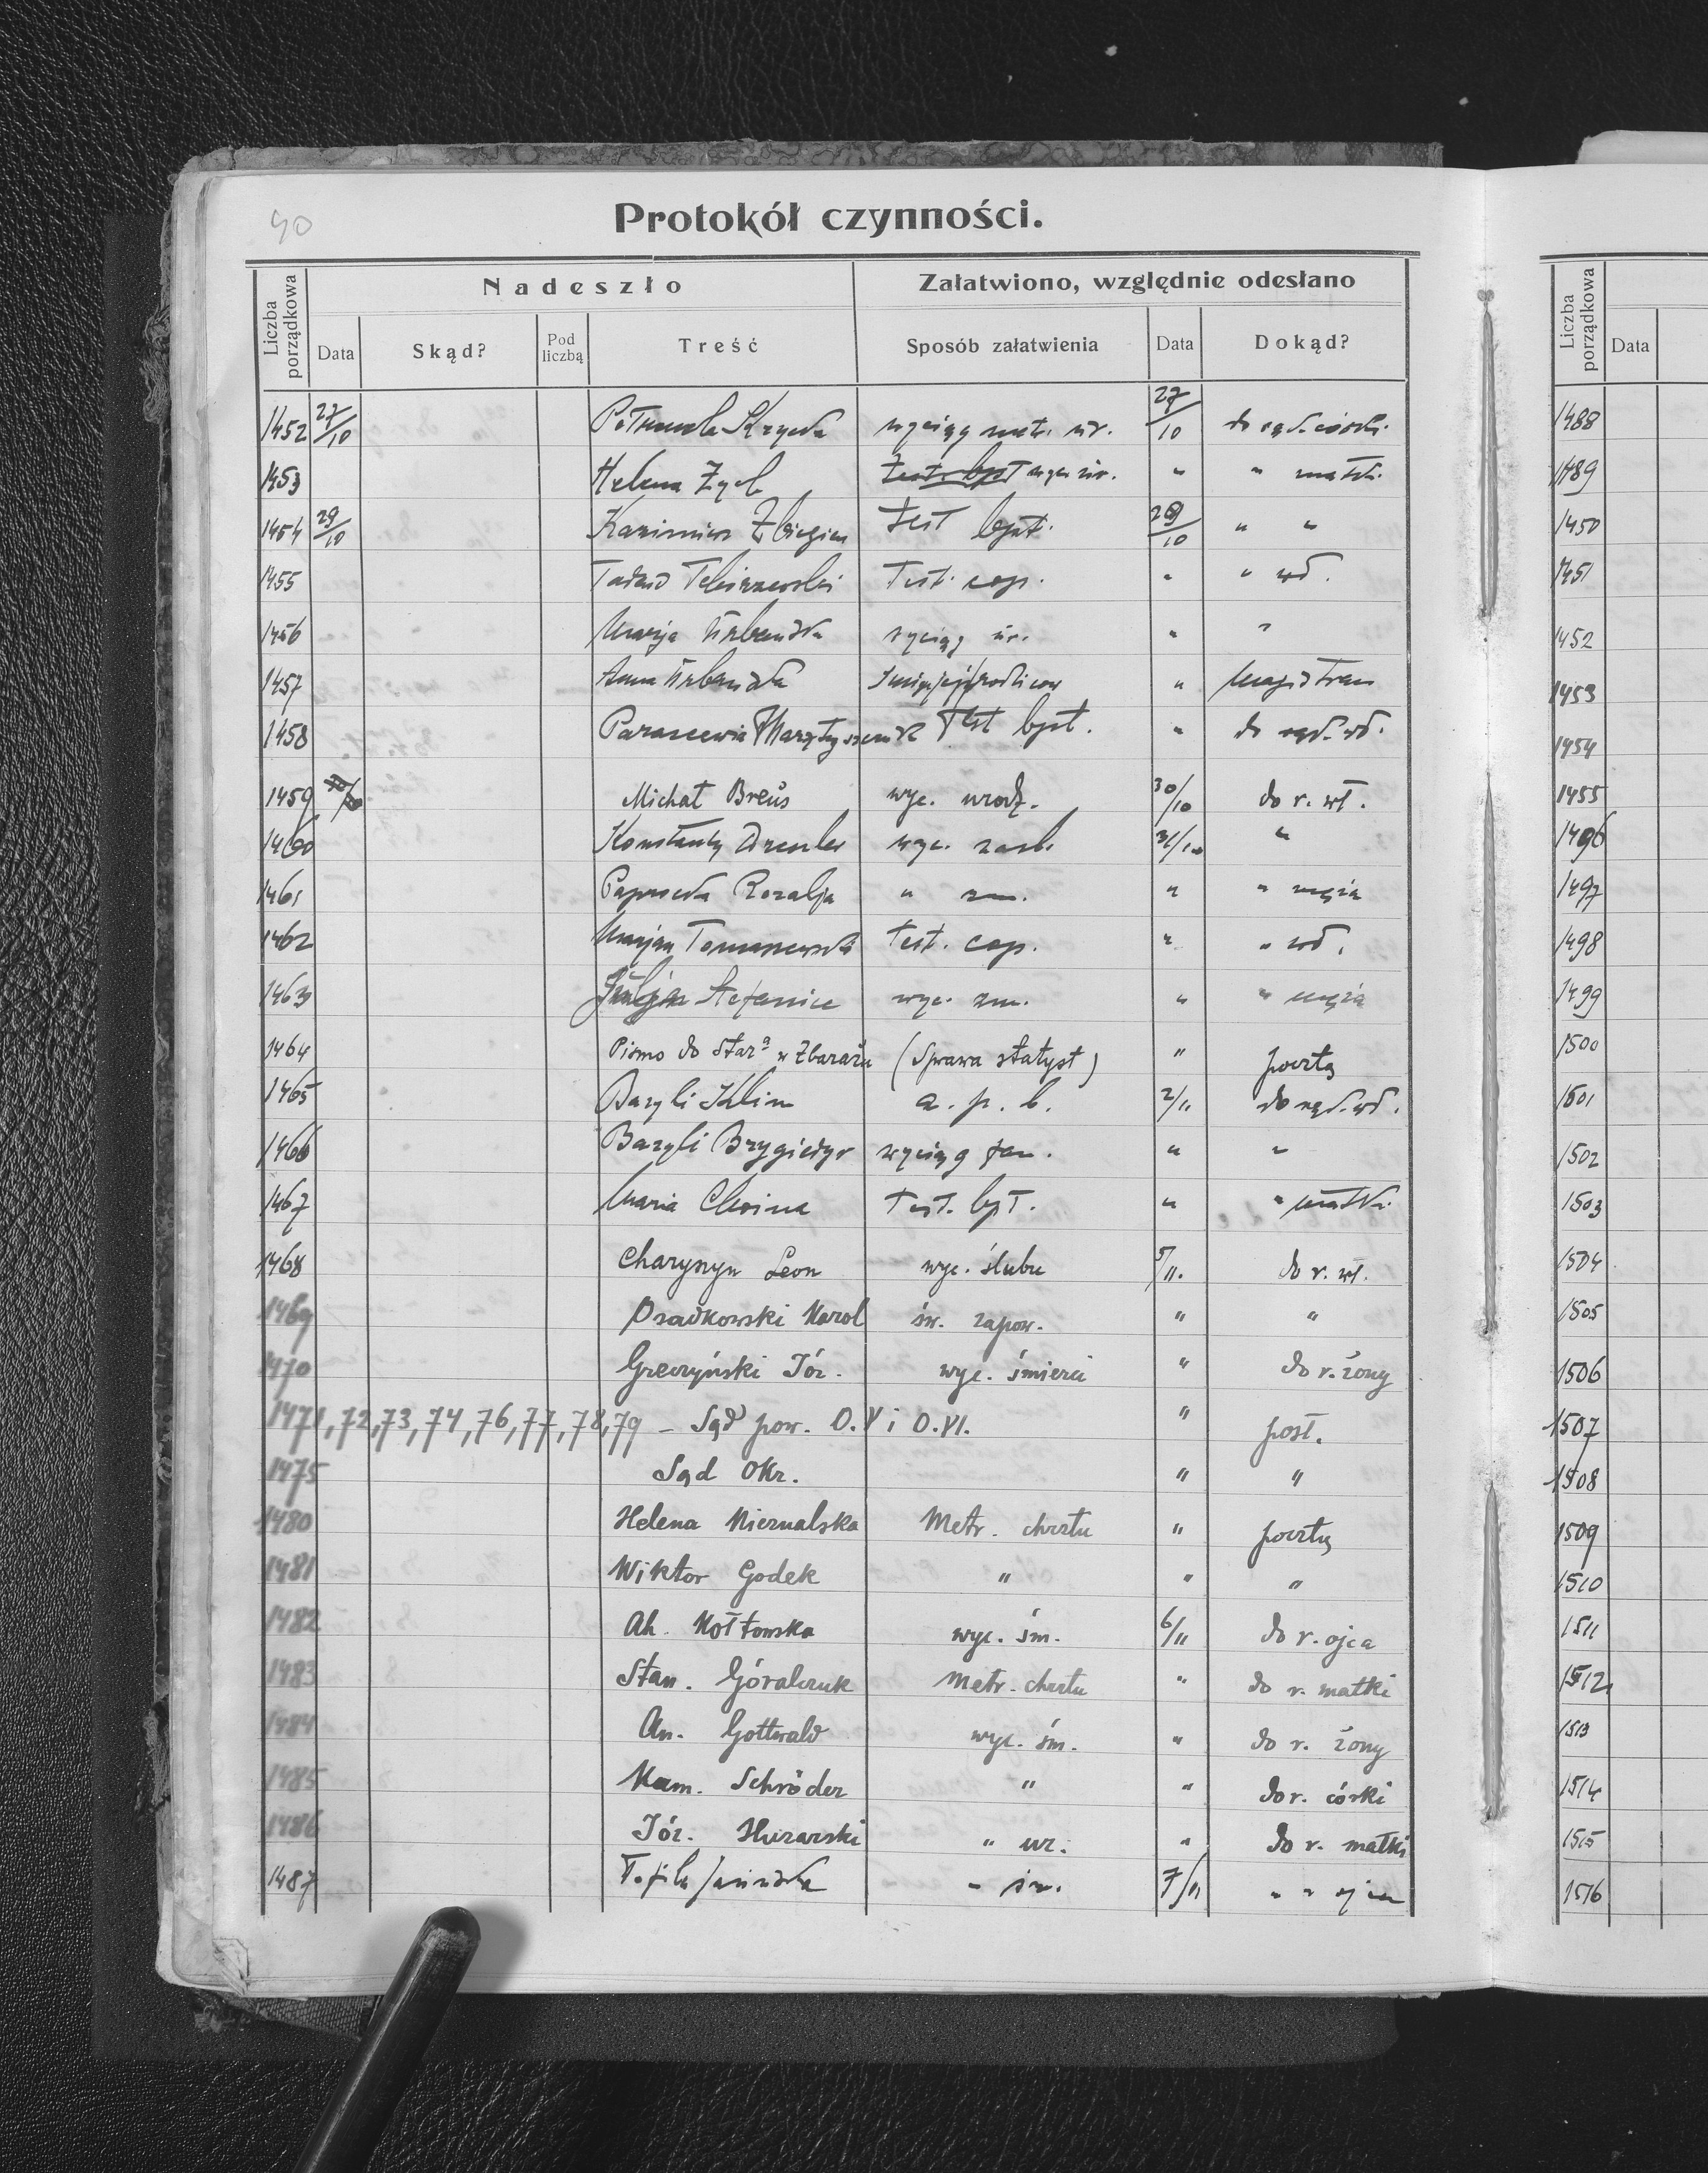 40
Protokół czynności.
Liczba porządkowa Nadeszło Załatwiono, względnie odesłano
Data Skąd? Pod liczbą Treść Sposób załatwienia Data Dokąd?
1452 27/10 wyciąg metr. ur. 27/10 do rąk córki
1453 Helena Zych wyc. ur. " " matki
1454 29/10 Test bpt. 29/10 " "
1455 Test. cop. " " wł.
1456 Marja Urbańska wyciąg ur. " "
1457 Anna Urbańska "
1458 Test bpt. " do rąk wł.
1459 Michał Breüs wyc. urodz. 30/10 do r. wł.
1460 Konstanty wyc. zaśl. 31/10 "
1461 Rozalja " zm. " " męża
1462 Marjan Tomaszewski Test. cap. " " wł.
1463 Stefanice wyc. zm. " " męża
1464 Pismo do Star. w Zbarażu (Sprawa statyst) " pocztą
1465 Bazyli Klim a. p. b. 2/11 do rąk wł.
1466 Bazyli wyciąg fam. " "
1467 Maria Choina Test. bpt. " " matki
1468 Charyszyn Leon wyc. ślubu 5/11. do r. wł.
1469 Osadkowski Karol św. zapow. " "
1470 Greczyński Józ. wyc. śmierci " do r. żony
1471, 72, 73, 74, 76, 77, 78, 79 – Sąd pow. O.V i O.VI. " post.
1475 Sąd Okr. " "
1480 Helena Niernalska Metr. chrztu " pocztą
1481 Wiktor Godek " " "
1482 Kołtowska wyc. śm. 6/11 do r. ojca
1483 Stan. Góralczuk Metr. chrztu " do r. matki
1484 An. Gottwald wyc. śm. " do r. żony
1485 Kam. Schröder " " do r. córki
1486 Józ. Huzarski " ur. " do r. matki
1487 " śm. 7/11 " " ojca
Liczba porządkowa
Data
1488
1489
1450
1451
1452
1453
1454
1455
1496
1497
1498
1499
1500
1501
1502
1503
1504
1505
1506
1507
1508
1509
1510
1511
1512
1513
1514
1515
1516